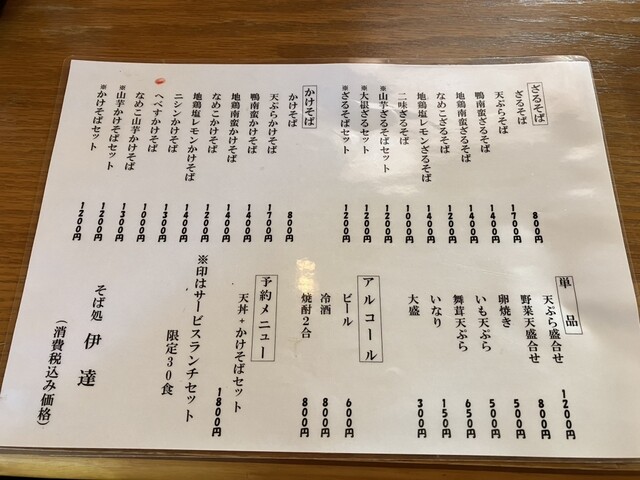 ざるそば
ざるそば 800円
天ぷらそば 1700円
鴨南蛮ざるそば 1400円
地鶏南蛮ざるそば 1400円
なめこざるそば 1200円
地鶏塩レモンざるそば 1400円
二味ざるそば 1000円
※山芋ざるそばセット 1300円
※大根ざるセット 1200円
※ざるそばセット 1200円
かけそば
かけそば 800円
天ぷらかけそば 1700円
鴨南蛮かけそば 1400円
地鶏南蛮かけそば 1400円
なめこかけそば 1200円
地鶏塩レモンかけそば 1400円
ニシンかけそば 1300円
へべすかけそば 1000円
なめこ山芋かけそば 1300円
※山芋かけそばセット 1200円
※かけそばセット 1200円
単品
天ぷら盛合せ 1200円
野菜天盛合せ 800円
卵焼き 500円
いも天ぷら 500円
舞茸天ぷら 650円
いなり 150円
大盛 300円
アルコール
ビール 600円
冷酒 800円
焼酎2合 800円
予約メニュー
天丼+かけそばセット 1800円
※印はサービスランチセット
限定30食
そば処 伊達
(消費税込み価格)